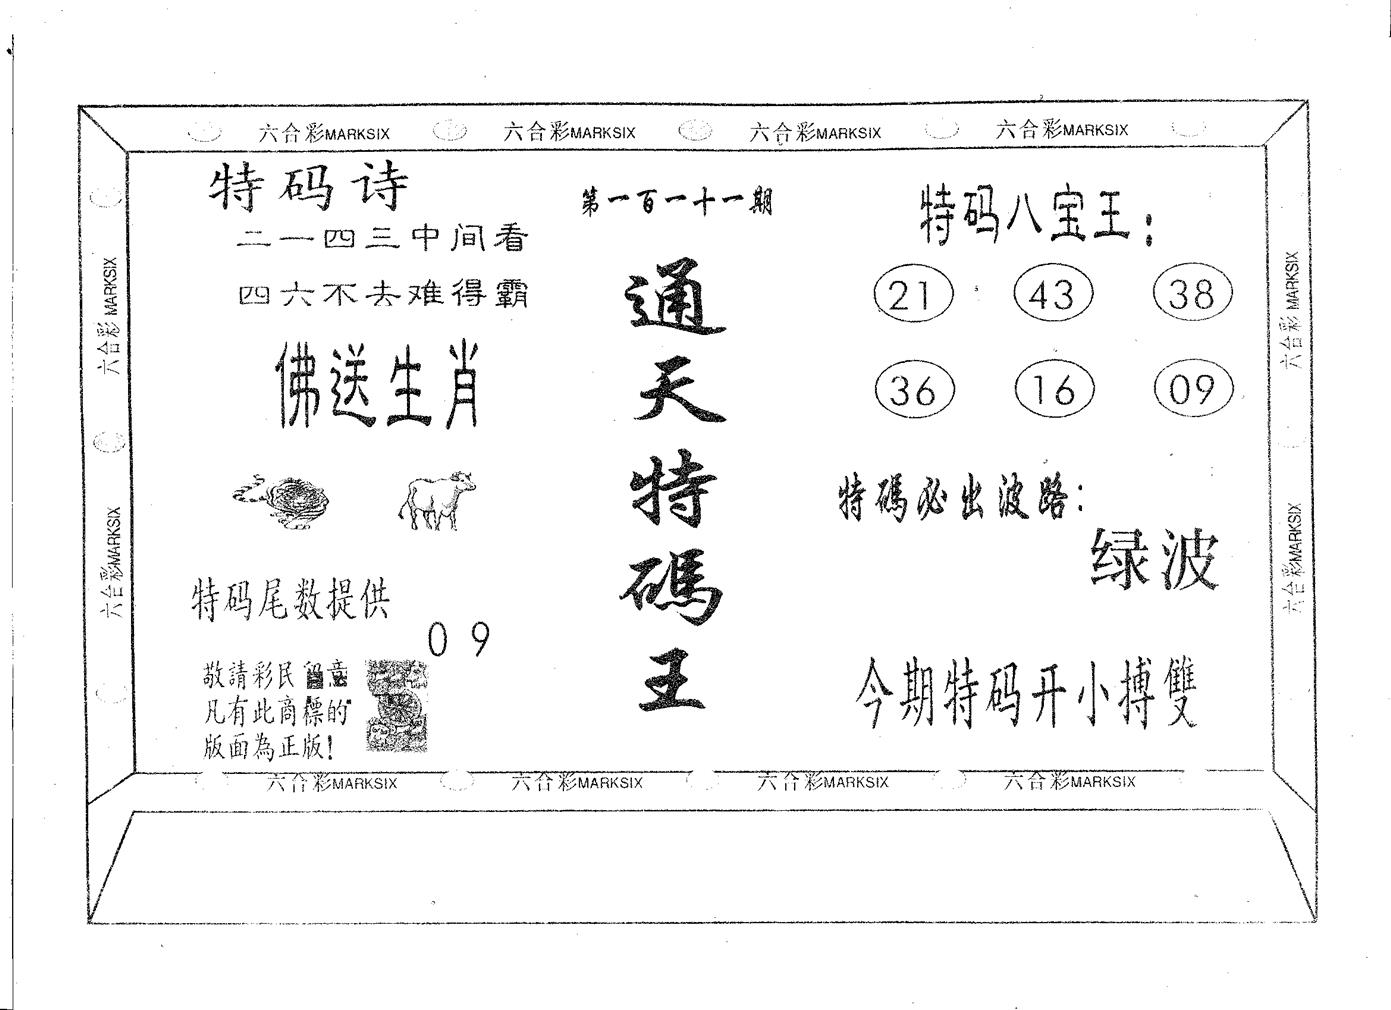 六合彩MARKSIX 六合彩MARKSIX 六合彩MARKSIX 六合彩MARKSIX
特码诗
二一四三中间看
四六不去难得霸
佛送生肖
特码尾数提供
0 9
敬請彩民留意
凡有此商標的
版面為正版!
第一百一十一期
通天特碼王
特码八宝王:
21 43 38
36 16 09
特碼必出波路:
绿波
今期特码开小搏雙
六合彩 MARKSIX
六合彩MARKSIX
六合彩 MARKSIX
六合彩MARKSIX
六合彩MARKSIX 六合彩MARKSIX 六合彩MARKSIX 六合彩MARKSIX